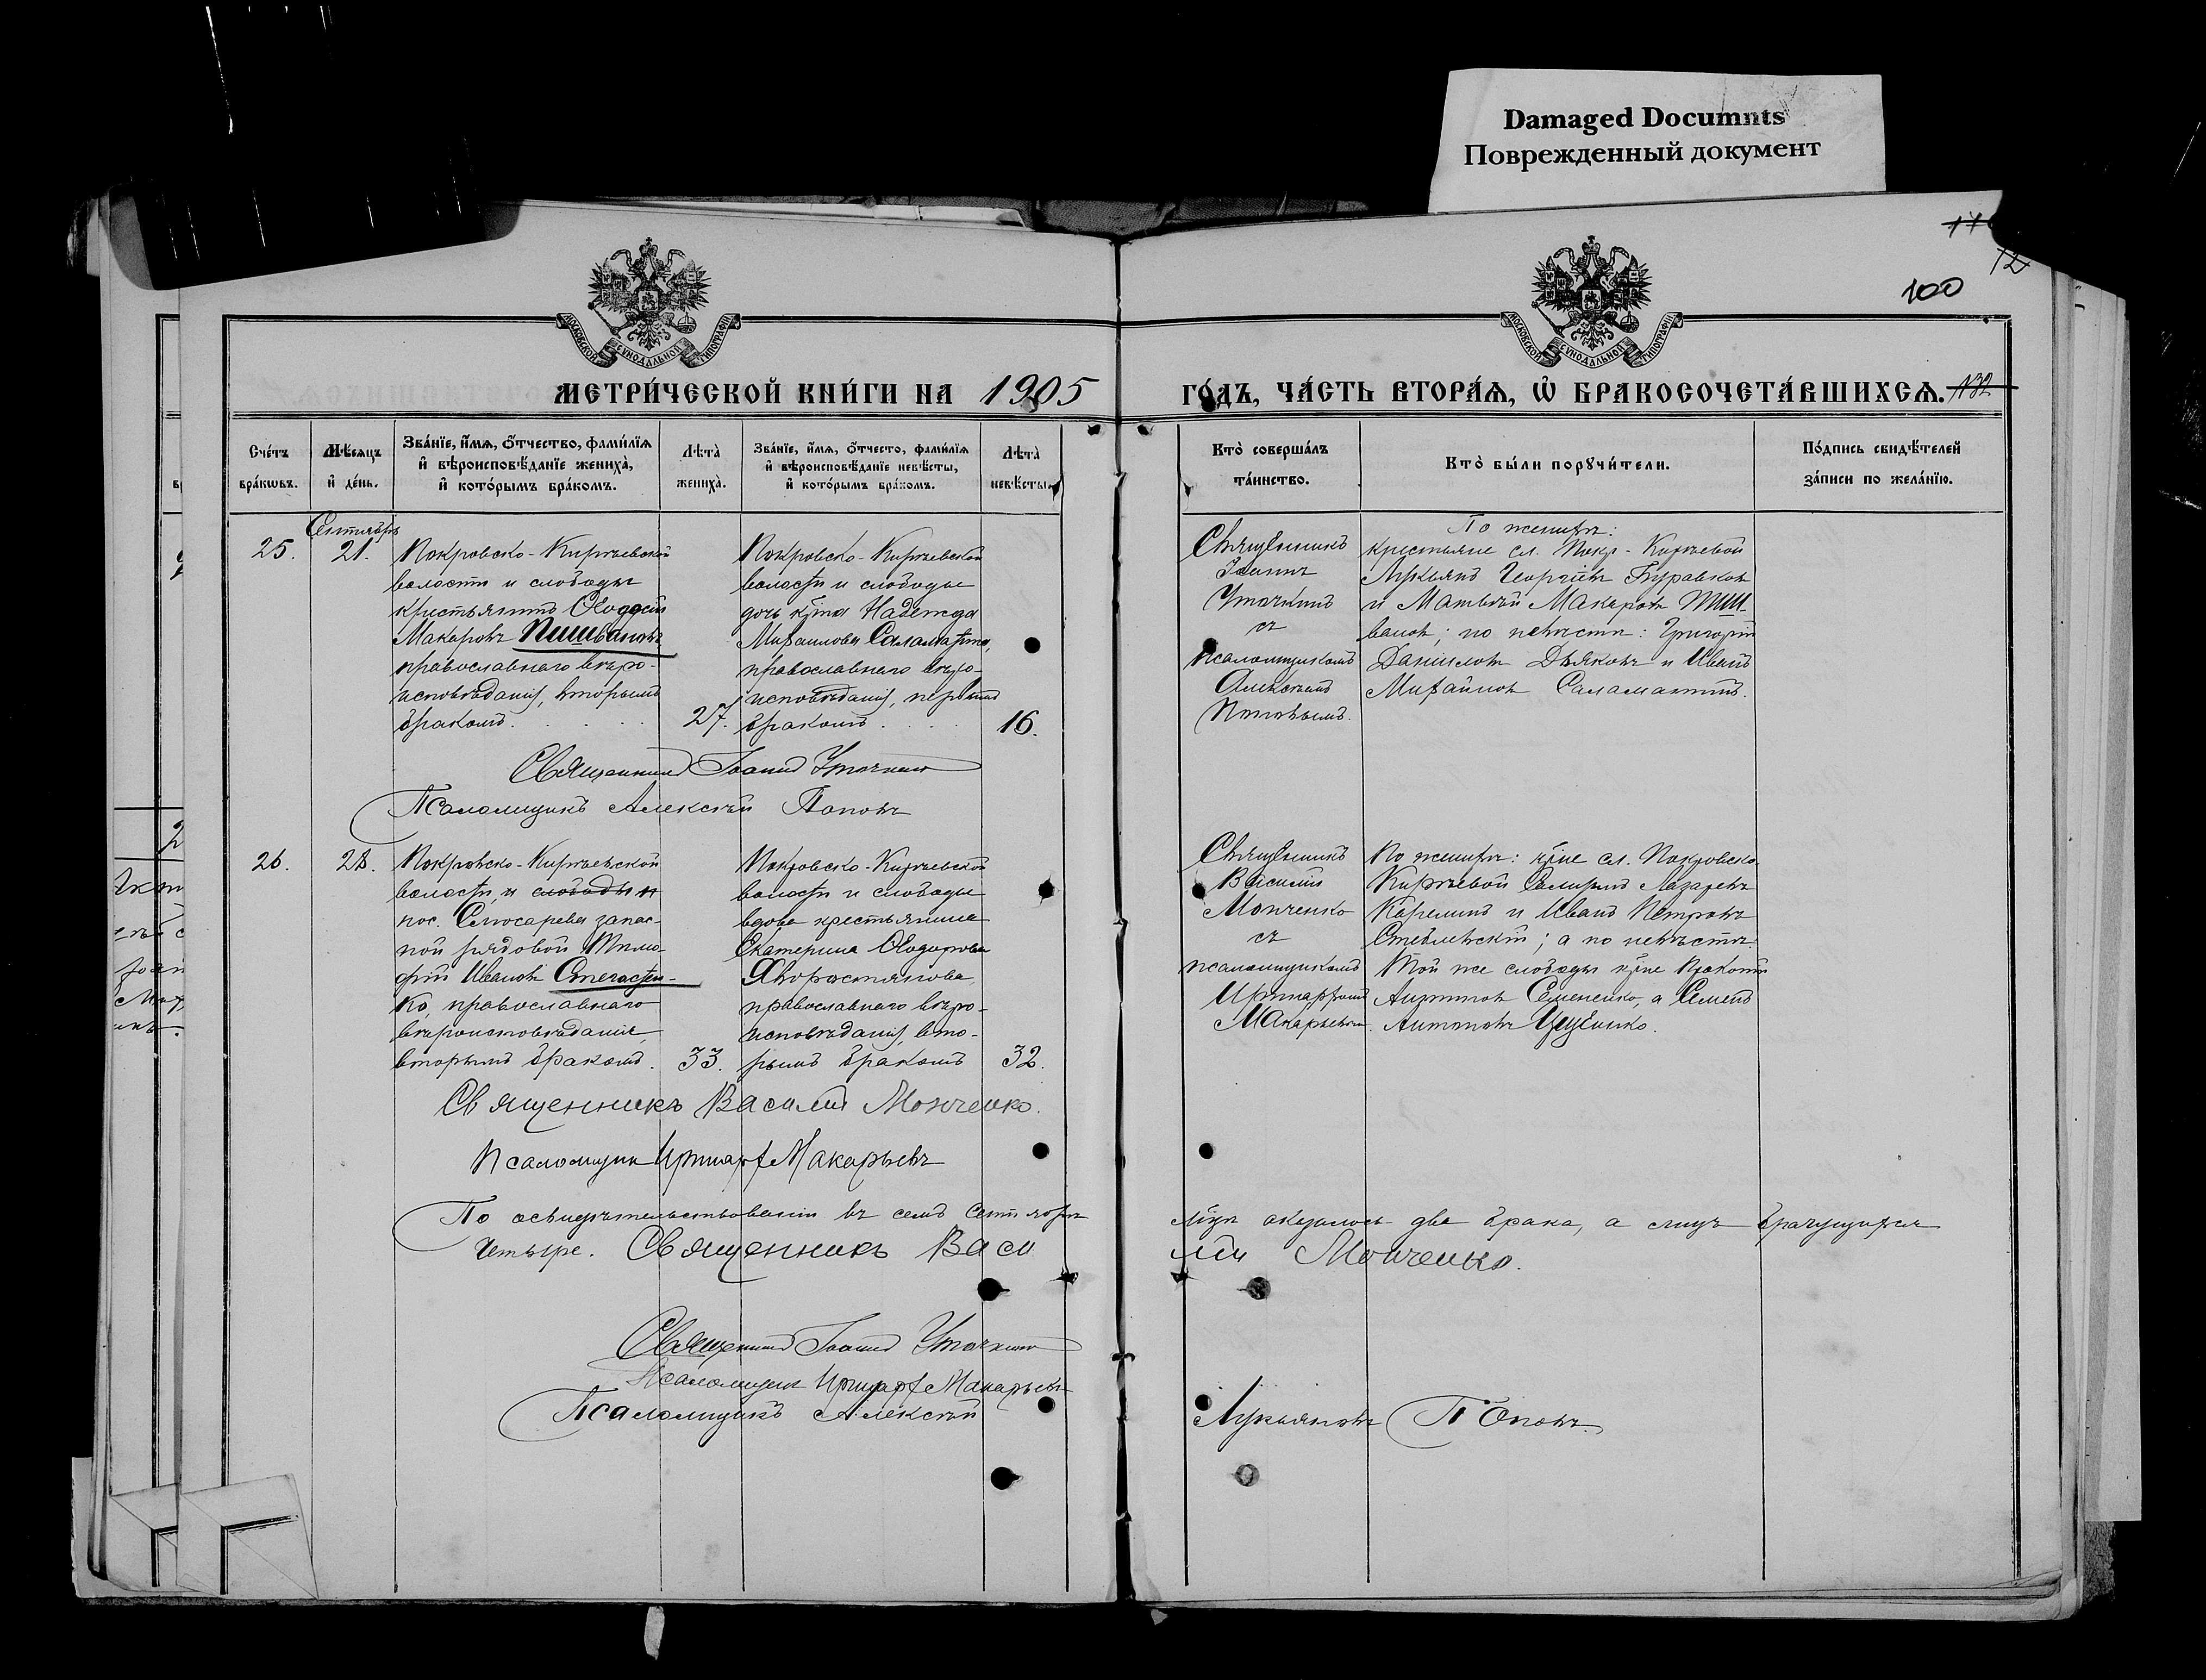 Damaged Documnts
Поврежденный документ
100
МОСКОВСКОЙ СУНОДАЛЬНОЙ ТИПОГРАФІИ
МОСКОВСКОЙ СУНОДАЛЬНОЙ ТИПОГРАФІИ
МЕТРИ́ЧЕСКОЙ КНИ́ГИ НА 1905
ГО́ДЪ, ЧА́СТЬ ВТОРА́Ѧ, Ѡ҆ БРАКОСОЧЕТА́ВШИХСѦ. 132
Сче́тъ бра́кѡвъ.
Мѣ́сяцъ и҆ де́нь.
Зва́нїе, и҆́мѧ, ѻ҆́тчество, фами́лїѧ
и҆ вѣроисповѣ́данїе жениха̀,
и҆ кото́рымъ бра́комъ.
Лѣта̀ жениха̀.
Зва́нїе, и҆́мѧ, ѻ҆́тчесто, фами́лїѧ
и҆ вѣроисповѣ́данїе невѣ́сты,
и҆ кото́рымъ бра́комъ.
Лѣта̀ невѣ́сты.
Кто̀ соверша́лъ
та́инство.
Кто̀ бы́ли порꙋчи́тели.
По́дпись свидѣ́телей
за́писи по жела́нїю.
Сентябрь
25.
21.
Покровско-Киреевской
волости и слободы
крестьянинъ Ѳеодосій
Макаровъ Пишвановъ
православнаго вѣро-
исповѣданія, вторымъ
бракомъ.
27.
Покровско-Киреевской
волости и слободы
дочь кр-на Надежда
Михаилова Саламатина,
православнаго вѣро-
исповѣданія, первымъ
бракомъ
16.
Священникъ
Іоаннъ
Уточкинъ
съ
псаломщикомъ
Алексѣемъ
Поповымъ.
По женихѣ:
крестьяне сл. Покр-Киреевой
Лукьянъ Георгіевъ Журавковъ
и Матвѣй Макаровъ Пиш-
вановъ; по невѣстѣ: Григорій
Даниловъ Дьяковъ и Иванъ
Михайловъ Саламатинъ.
Священникъ Іоаннъ Уточкинъ
Псаломщикъ Алексѣй Поповъ
26.
28.
Покровско-Киреевской
волости, и слободы и
пос. Слюсарева запас-
ной рядовой Тимо-
фей Ивановъ
ко, православнаго
вѣроисповѣданія,
вторымъ бракомъ.
33.
Покровско-Киреевской
волости и слободы
вдова крестьянина
Екатерина Ѳеодорова
Хворостянова
православнаго вѣро-
исповѣданія, вто-
рымъ бракомъ
32.
Священникъ
Василій
Монченко
съ
псаломщикомъ
Иринархомъ
Макарьевымъ.
По женихѣ: кр-не сл. Покровско-
Киреевой Лазаревъ
Карелинъ и Иванъ Петровъ
Стеблевскій; а по невѣстѣ:
Той же слободы кр-не Прокопій
Антоновъ Семененко, а Семенъ
Антоновъ Ищенко.
Священникъ Василій Мончен­ко.
Псаломщик Иринарх Макарьевъ
По освидѣтельствованіи въ семъ Сентябрѣ
мѣсяцѣ оказалось два брака, а лицъ брачущихся
четыре. Священникъ Васи
лій Мончен­ко.
Священникъ Іоаннъ Уточкинъ
Псаломщик Иринарх Макарьевъ
Псаломщикъ Алексѣй
Лукьяновъ Поповъ.